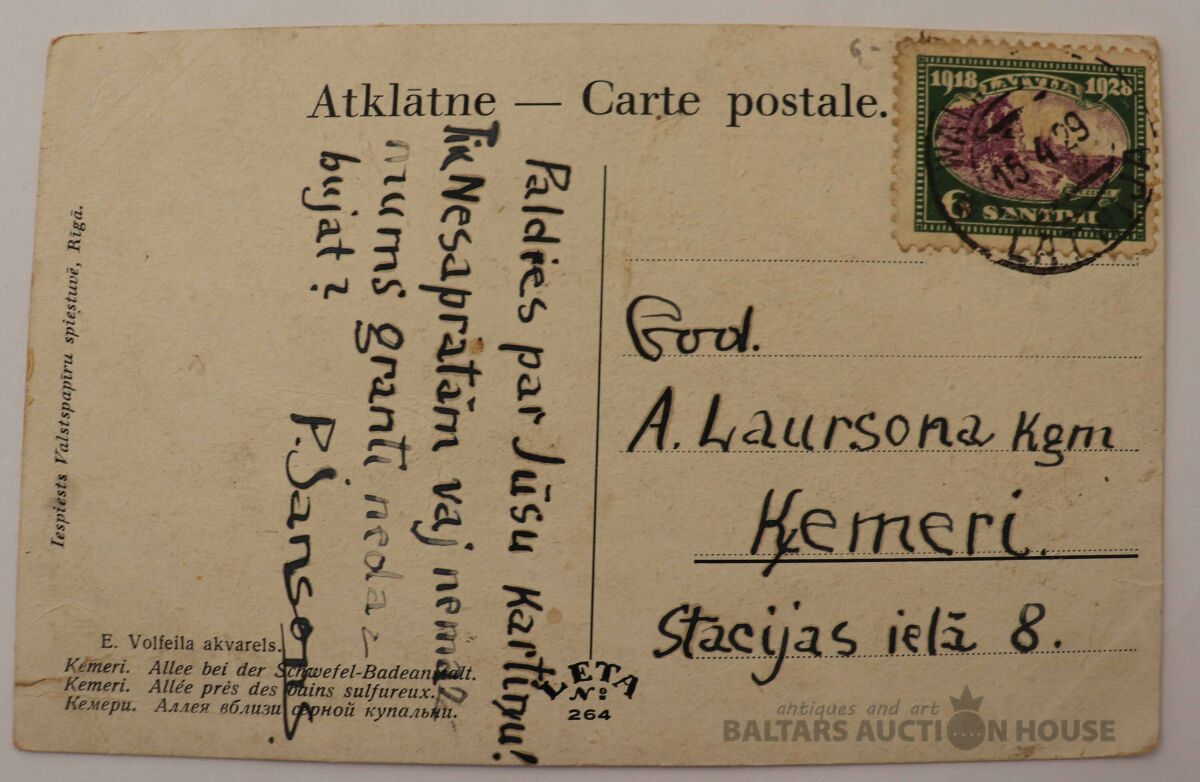 Atklātne — Carte postale.
1918 LATVIJA 1928
6 SANTIMI
15 4 29
LATVIJA
Paldies par Jūsu kartiņu!
Tik Nesapratām vaj nemaz
mums granti nedaz
bujat?
P. Jansons.
God.
A. Laursona kgm
Ķemeri.
Stacijas ielā 8.
Iespiests Valstspapīru spiestuvē, Rīgā.
E. Volfeila akvarels.
Ķemeri. Allee bei der Schwefel-Badeanstalt.
Kemeri. Allée près des bains sulfureux.
Кемери. Аллея вблизи серной купальни.
LETA
№
264
antiques and art
BALTARS AUCTION HOUSE